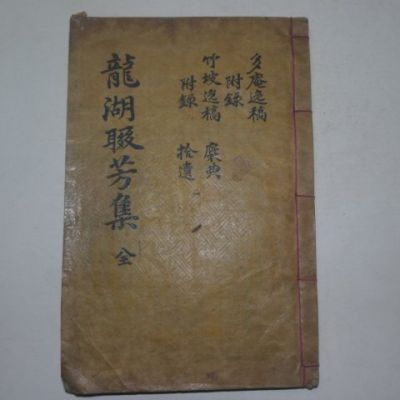 多庵逸稿
附錄
竹坡逸稿 典
附錄 拾遺
龍湖聯芳集 全